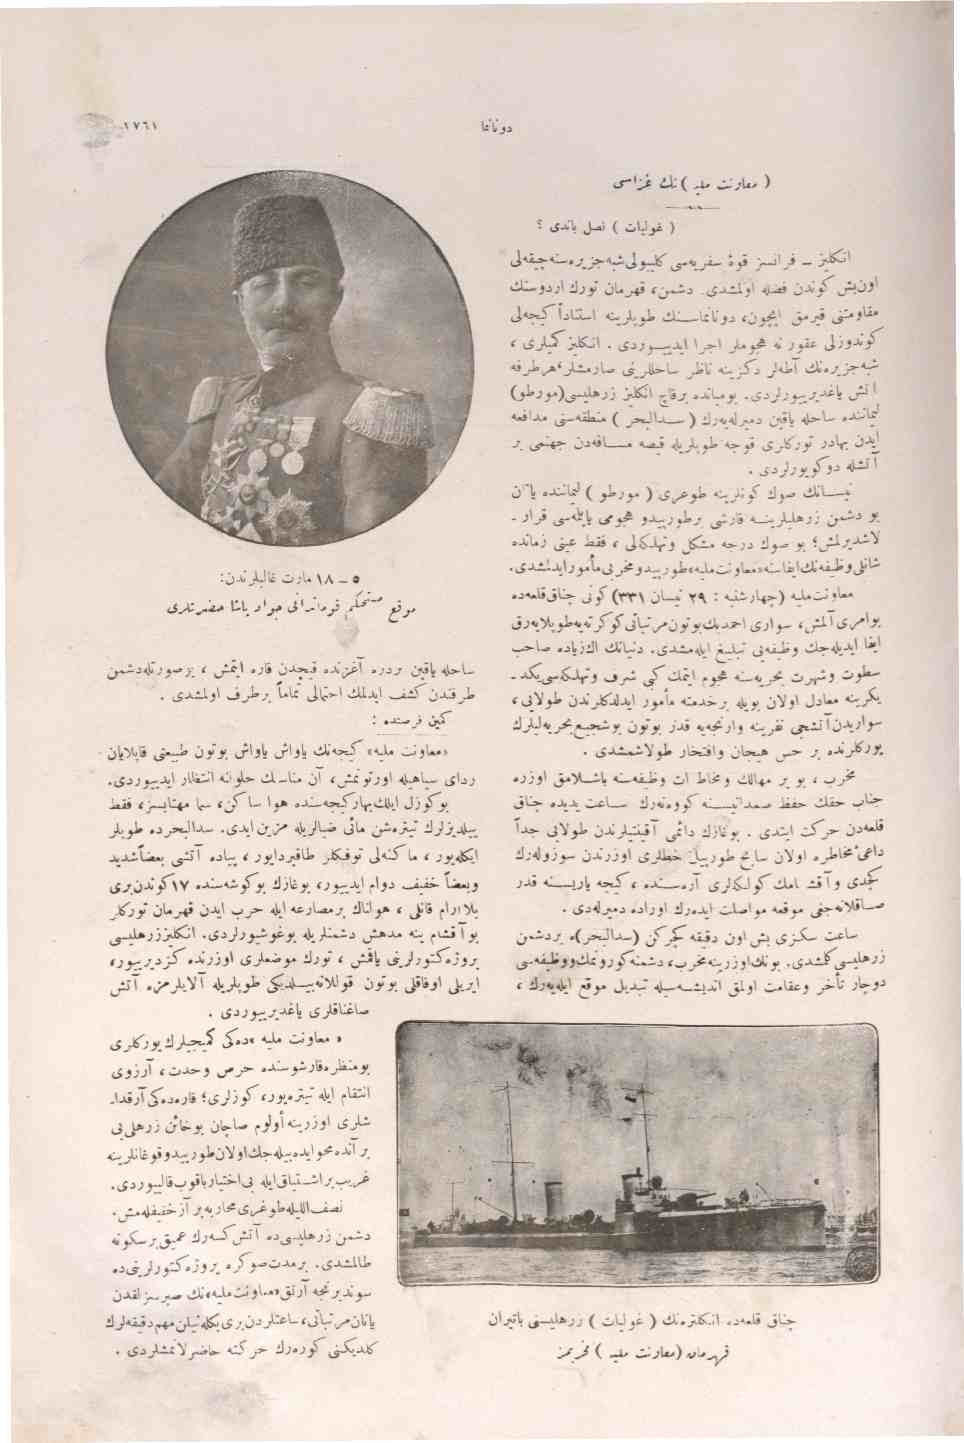 ١٧٦١
دونانما
( معاونت مليه ) نك غزاسى
( غوليات ) نصل باتدى ؟
انكليز ـ فرانسز قوۀ سفريه‌سى كليبولى شبه جزيره‌سنه چيقه‌لى
اون بش كوندن فضله اولمشدى. دشمن، قهرمان تورك اردوسنك
مقاومتنى قيرمق ايچون، دونانماسنك طوپلرينه استناداً كيجه‌لى
كوندوزلى عقورانه هجوملر اجرا ايدييوردى . انكليز كميلرى ،
شبه جزيره‌نك آطه‌لر دكزينه ناظر ساحللرينى صارمشلر، هر طرفه
آتش ياغديرييورلردى. بوميانده برقاچ انكليز زرهليسى (مورطو)
ليماننده ساحله ياقين دميرله‌يه‌رك ( سدالبحر ) منطقه‌سنى مدافعه
ايدن بهادر توركلرى قوجه طوپلريله قيصه مسافه‌دن جهنمى بر
آتشله دوكويورلردى .
نيسانك صوك كونلرينه طوغرى ( مورطو ) ليماننده ياتان
بو دشمن زرهليلرينه قارشى برطورپيدو هجومى ياپلمه‌سى قرار ـ
لاشديرلمش؛ بو صوك درجه مشكل وتهلكه‌لى ، فقط عينى زمانده
شانلى وظيفه‌نك ايفاسنه «معاونت مليه» طورپيدو مخربى مأمور ايدلمشدى.
معاونت مليه (چهارشنبه : ٢٩ نيسان ٣٣١) كونى چناق قلعه‌ده
بوامرى آلمش، سوارى احمد بك بوتون مرتباتى كوكرته‌يه طوپلايه‌رق
ايفا ايديله‌جك وظيفه‌يى تبليغ ايله‌مشدى. دنيانك اك زياده صاحب
سطوت وشهرت بحريه‌سنه هجوم ايتمك كبى شرف وتهلكه‌سى يكد ـ
يكرينه معادل اولان بويله برخدمته مأمور ايدلدكلرندن طولايى ،
سواريدن آتشجى نفرينه وارنجه‌يه قدر بوتون بو شجيع بحريه‌ليلرك
يوركلرنده بر حس هيجان وافتخار طولاشمشدى .
مخرب ، بو پر مهالك ومخاطرات وظيفه‌سنه باشلامق اوزره
جناب حقك حفظ صمدانيسنه كووه‌نه‌رك ساعت يديده چناق
قلعه‌دن حركت ايتدى . بوغازك دائمى آقينتيلرندن طولايى جداً
داعئ مخاطره اولان سابح طورپيل خطلرى اوزرندن سوزوله‌رك
كچدى وآقشامك كولكه‌لرى آره‌سنده ، كيجه ياريسنه قدر
صاقلانه‌جغى موقعه مواصلت ايده‌رك اوراده دميرله‌دى .
ساعت سكزى بش اون دقيقه كچركن (سدالبحر)ه بردشمن
زرهليسى كلمشدى. بونك اوزرينه مخرب، دشمنه كورونمك ووظيفه‌سى
دوچار تأخر وعقامت اولمق انديشه‌سيله تبديل موقع ايله‌يه‌رك ،
٥ ـ ١٨ مارت غالبلرندن:
موقع مستحكم قوماندانى جواد پاشا حضرتلرى
ساحله ياقين بردره آغزنده قيچدن قاره ايتمش ، بو صورتله دشمن
طرفندن كشف ايدلمك احتمالى تماماً برطرف اولمشدى .
كمين فرصنده :
«معاونت مليه» كيجه‌نك ياواش ياواش بوتون طبيعتى قاپلايان
رداى سياهيله اورتونمش، آن مناسبك حلولنه انتظار ايدييوردى.
بو كوزل ايلك بهار كيجه‌سنده هوا ساكن، سما مهتابسز ، فقط
ييلديزلرك تيتره‌شن مائى ضيالريله مزين ايدى. سدالبحرده طوپلر
ايكله‌يور ، ماكنه‌لى توفنكلر طاقيرداييور ، پياده آتشى بعضاً شديد
وبعضاً خفيف دوام ايدييور، بوغازك بو كوشه‌سنده ١٧ كوندن برى
بلا آرام قانلى ، هولناك بر مصارعه ايله حرب ايدن قهرمان توركلر
بو آقشام ينه مدهش دشمنلريله بوغوشيورلردى. انكليز زرهليسى
پروژه‌كتورلرينى ياقمش ، تورك موضعلرى اوزرنده كزديرييور،
ايريلى اوفاقلى بوتون قوللانه‌بيلديكى طوپلريله آلايلرمزه آتش
صاغناقلرى ياغديرييوردى .
« معاونت مليه »ده‌كى كميجيلرك يوركلرى
بو منظره قارشوسنده حرص وحدت ، آرزوى
انتقام ايله تيتره‌يور، كوزلرى؛ قاره‌ده‌كى آرقدا ـ
شلرى اوزرينه اولوم صاچان بو خائن زرهلى‌يى
بر آنده محو ايده‌بيله‌جك اولان طورپيدو قوغانلرينه
غريب بر اشتياق ايله بى اختيار باقوب قالييوردى.
نصف الليله طوغرى محاربه بر آز خفيفله‌مش.
دشمن زرهليسى ده آتش كسه‌رك عميق بر سكونه
طالمشدى. برمدت صوكره پروژه‌كتورلرينى ده
سوندیرنجه آرتق «معاونت مليه»نك صبرسزلقدن
يانان مرتباتى، ساعتلردن برى بكله‌نيلن مهم دقيقه‌لرك
كلديكنى كوره‌رك حركته حاضرلانمشلردى .
چناق قلعه‌ده انكلتره‌نك ( غوليات ) زرهليسنى باتيران
قهرمان (معاونت مليه ) مخربمز